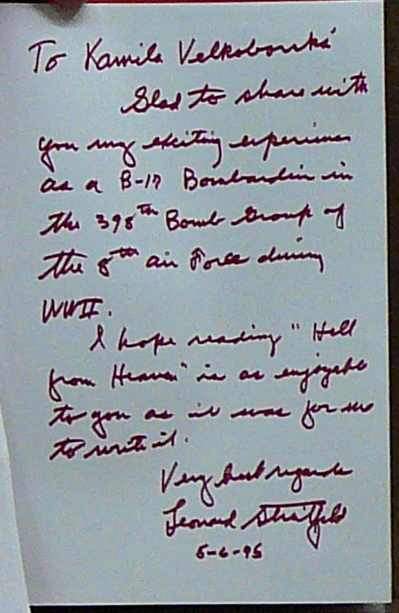 To Kamila Velkoborská
Glad to share with
you my exciting experiences
as a B-17 Bombardier in
the 398th Bomb Group of
the 8th Air Force during
WWII.
I hope reading "Hell
from Heaven" is as enjoyable
to you as it was for me
to write it.
Very best regards
Leonard Streitfeld
5-6-95